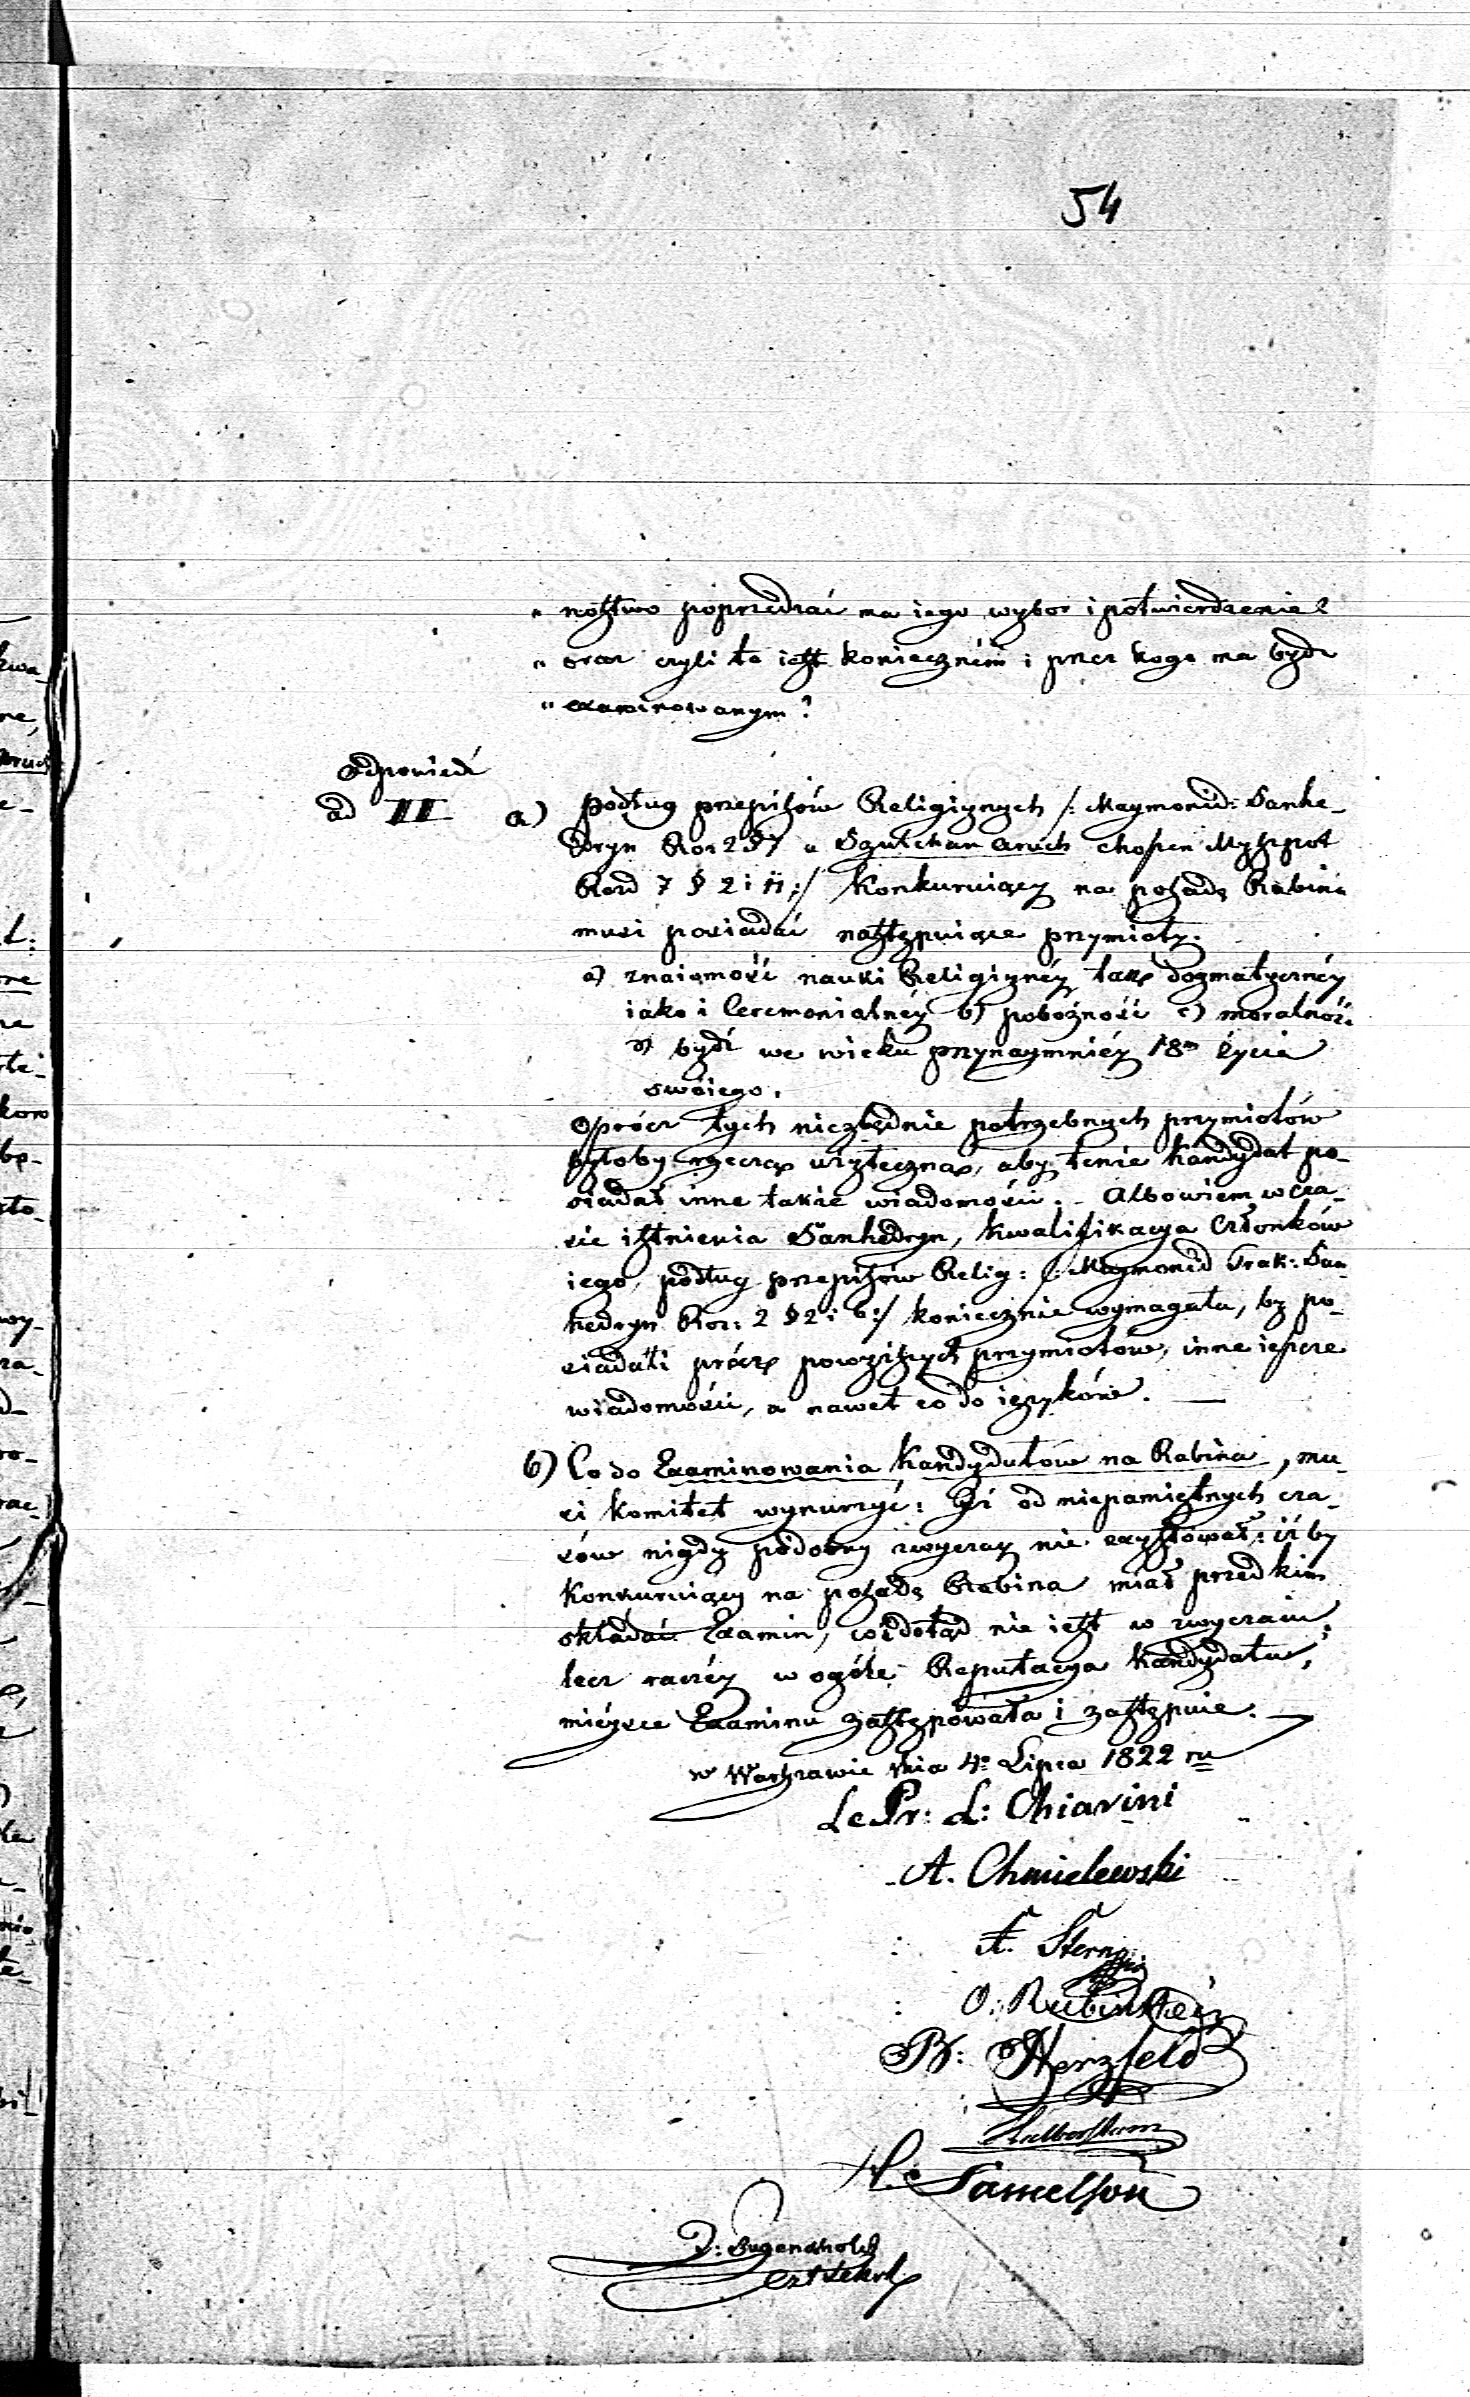 54
„ noſtwo poprzedzać ma iego wybor i potwierdzenie?
„ oraz czyli to ieſt konieczném i przez kogo ma bydz
„ examinowanym?
Odpowiedź
ad II
a) podług przepiſów Religiynych /: Maymonid: Sanhe-
dryn Roz 2 § 7 u Szulchan Aruch Choſzen Myſzpot
Rozd 7 § 2 i 11 :/ Konkuruiący na poſadę Rabina
musi posiadać naſtępuiące przymioty.
a) znaiomość nauki Religiynéy tak dogmatycznéy
iako i Ceremonialnéy b) pobożność c) moralność
d) bydź we wieku przynaymniéy 18m życia
swoiego.
Oprócz tych niezbędnie potrzebnych przymiotów
byłoby rzeczą użyteczną, aby tenże Kandydat po-
siadał inne także wiadomości. - Albowiem w cza-
sie iſtnienia Sanhedryn, Kwalifikacya Członków
iego, podług przepiſów Relig: /: Maymonid Trak: San-
hedryn Roz: 2 § 2 i 6 :/ koniecznie wymagała, by po-
siadali prócz powyżſzych przymiotów, inne ieſzcze
wiadomości, a nawet co do ięzyków. —
b) Co do Examinowania Kandydatów na Rabina, mu-
si Komitet wynurzyć: Iż od niepamiętnych cza-
sów nigdy podobny zwyczay nie exyſtował; iż by
Konkuruiący na poſadę Rabina miał przed kim
składać Examin, coż dotąd nie ieſt w zwyczaiu,
lecz raczéy w ogóle Reputacya Kandydata,
mieysce Examinu zaſtępowała i zaſtępuie. —
w Warſzawie dnia 4o Lipca 1822 ru
Le Pr: L: Chiarini
A. Chmielewski
A. Stern
O: Rubinstein
B: Herzfeld
Halberstam
H. Samelſon
J: Tugendhold